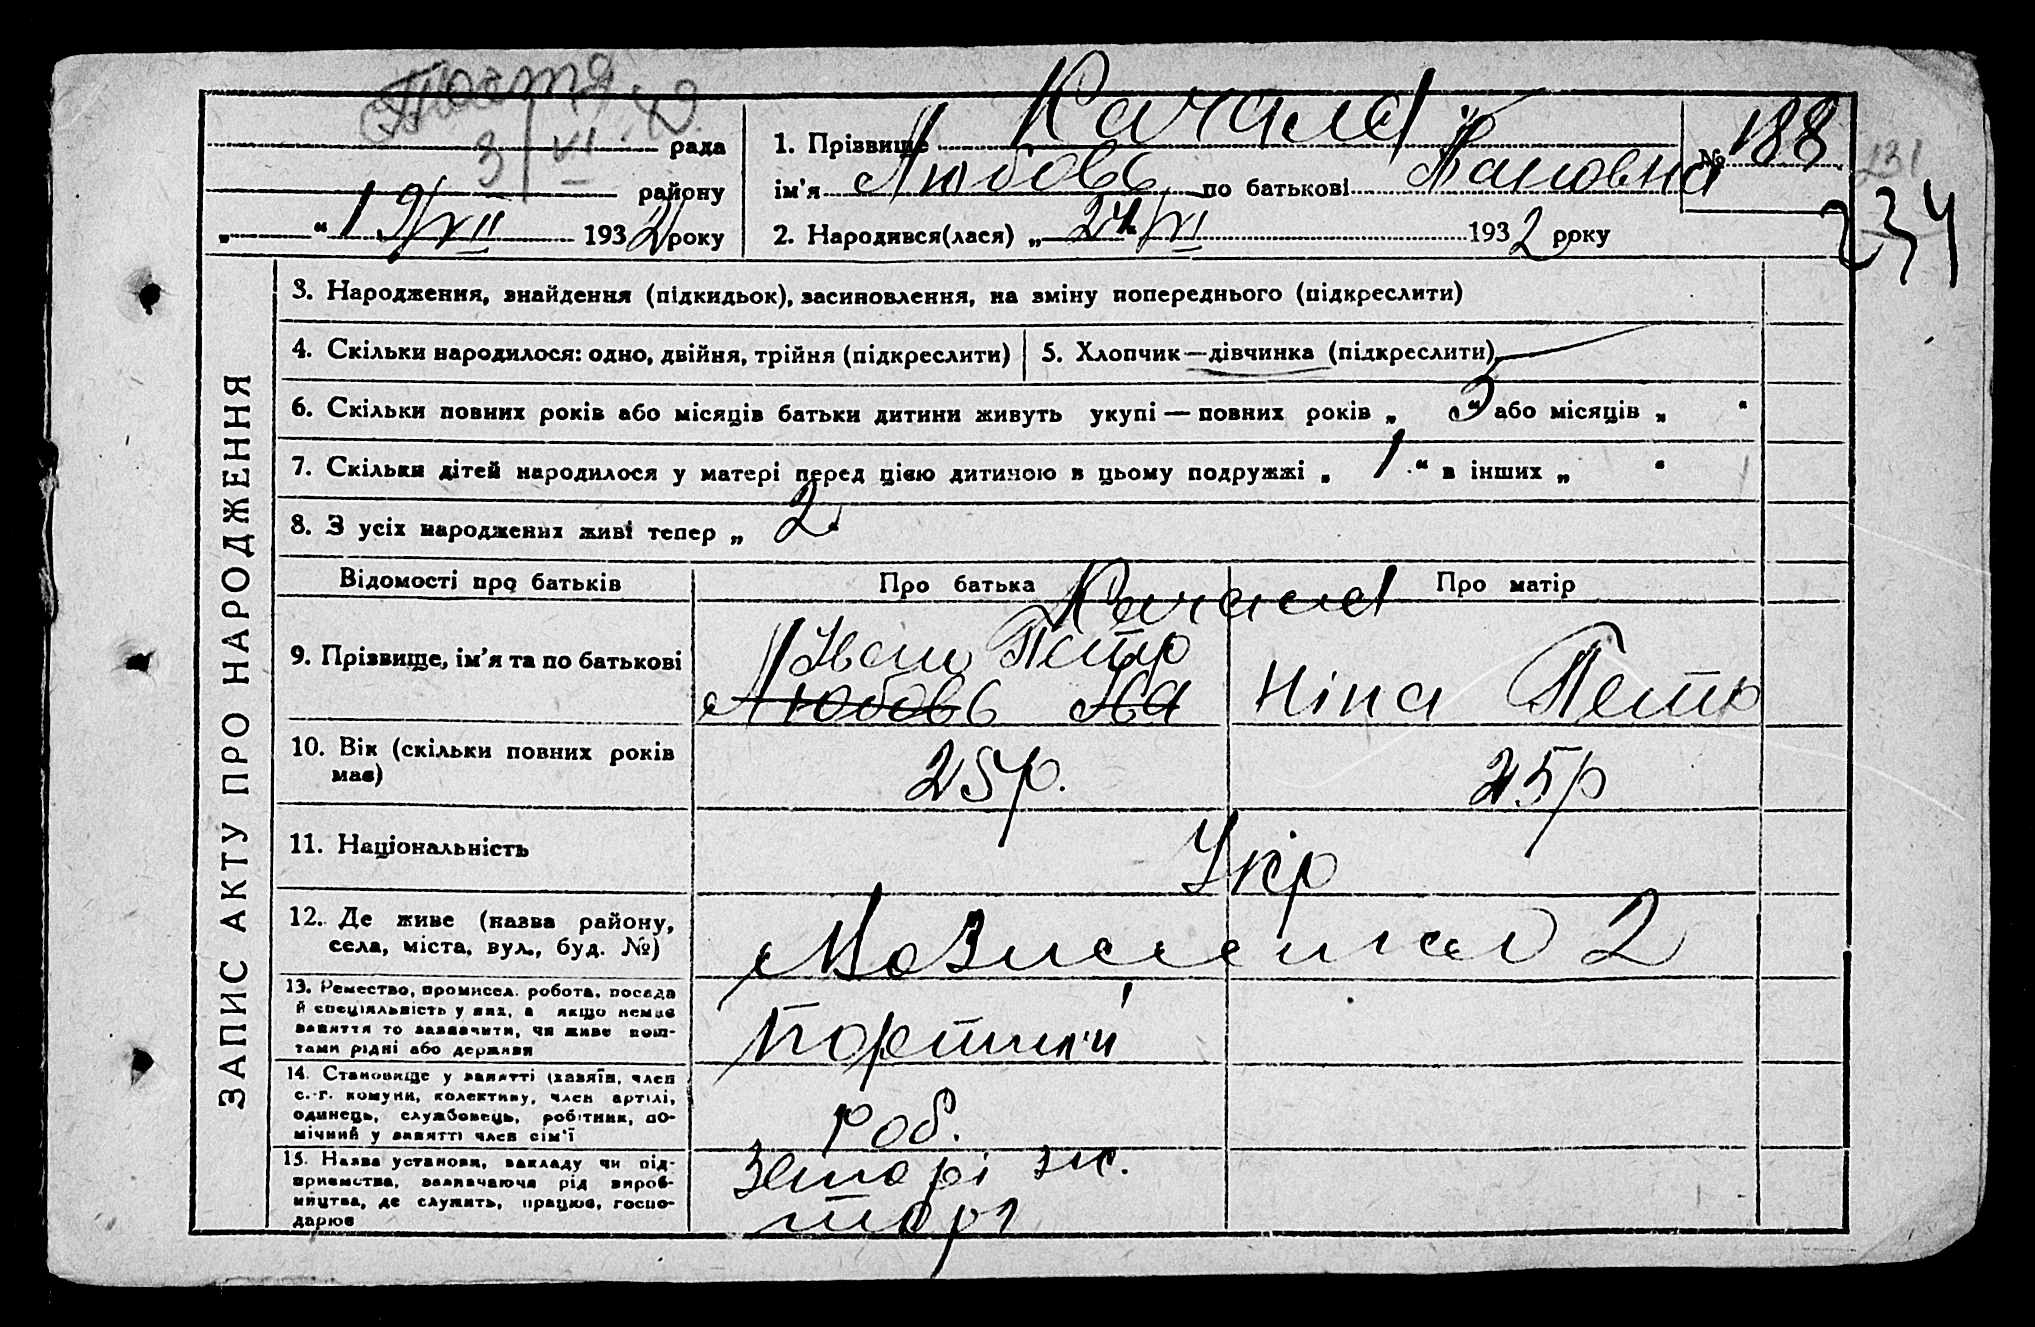 3/VI
рада
району
„ “ 19/VII 1932 року
1. Прізвище Качала
ім'я Любовь по батькові
2. Народився(лася) „24“/VI 1932 року
№ 188
131
234
ЗАПИС АКТУ ПРО НАРОДЖЕННЯ
3. Народження, знайдення (підкидьок), засиновлення, на зміну попереднього (підкреслити)
4. Скільки народилося: одно, двійня, трійня (підкреслити)
5. Хлопчик—дівчинка (підкреслити)
6. Скільки повних років або місяців батьки дитини живуть укупі — повних років „ 3 “ або місяців „ “
7. Скільки дітей народилося у матері перед цією дитиною в цьому подружжі „ 1 “ в інших „ “
8. З усіх народжених живі тепер „ 2
Відомості про батьків
Про батька
Про матір
Качала
9. Прізвище, ім'я та по батькові
Іван Петр
Любовь Ив
Ніна Петр
10. Вік (скільки повних років має)
25 р.
25 р
11. Національність
Укр
12. Де живе (назва району, села, міста, вул., буд. №)
2
13. Ремество, промисел, робота, посада
й спеціяльність у них, а якщо немає
заняття то зазначити, чи живе кош-
тами рідні або держави
Портний
14. Становище у занятті (хазяїн, член
с.-г. комуни, колективу, член артілі,
одинець, службовець, робітник, по-
мічний у занятті член сім'ї
роб.
15. Назва установи, закладу чи під-
приємства, зазначаючи рід вироб-
ництва, де служить, працює, госпо-
дарює
торг